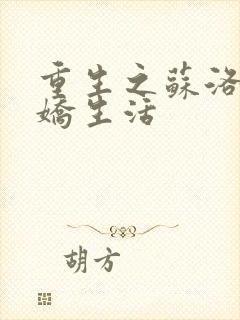 重生之蘇洛
嬌生活
胡方